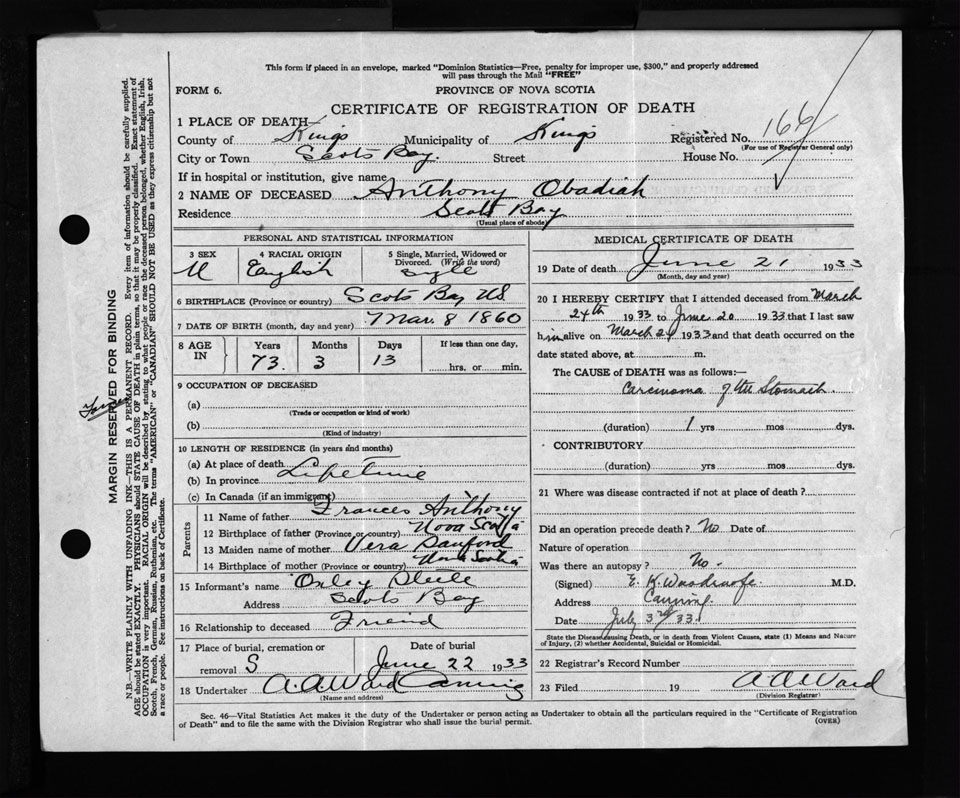 This form if placed in an envelope, marked "Dominion Statistics—Free, penalty for improper use, $300," and properly addressed
will pass through the Mail "FREE"
FORM 6.
PROVINCE OF NOVA SCOTIA
CERTIFICATE OF REGISTRATION OF DEATH
1 PLACE OF DEATH
County of Kings Municipality of Kings Registered No. 166
(For use of Registrar General only)
City or Town Scots Bay. Street House No.
If in hospital or institution, give name
2 NAME OF DECEASED Anthony Obadiah
Residence Scots Bay
(Usual place of abode)
PERSONAL AND STATISTICAL INFORMATION
3 SEX 4 RACIAL ORIGIN 5 Single, Married, Widowed or
Divorced. (Write the word)
M English Single
6 BIRTHPLACE (Province or country) Scots Bay NS.
7 DATE OF BIRTH (month, day and year) Mar. 8 1860
8 AGE IN Years Months Days If less than one day,
73. 3 13 hrs. or min.
9 OCCUPATION OF DECEASED
(a)
(Trade or occupation or kind of work)
(b)
(Kind of industry)
10 LENGTH OF RESIDENCE (in years and months)
(a) At place of death
(b) In province Lifetime
(c) In Canada (if an immigrant)
Parents
11 Name of father Frances Anthony
12 Birthplace of father (Province or country) Nova Scotia
13 Maiden name of mother Vera Sanford
14 Birthplace of mother (Province or country) Nova Scotia
15 Informant's name Oxley Steele
Address Scots Bay
16 Relationship to deceased Friend
17 Place of burial, cremation or Date of burial
removal S June 22 1933
18 Undertaker A. A Ward Canning
(Name and address)
MEDICAL CERTIFICATE OF DEATH
19 Date of death June 21 1933
(Month, day and year)
20 I HEREBY CERTIFY that I attended deceased from March
24th 1933 to June 20 1933 that I last saw
him alive on March 24 1933 and that death occurred on the
date stated above, at m.
The CAUSE of DEATH was as follows:—
Carcinoma of the Stomach.
(duration) 1 yrs mos dys.
CONTRIBUTORY
(duration) yrs mos dys.
21 Where was disease contracted if not at place of death?
Did an operation precede death? No Date of
Nature of operation
Was there an autopsy? No.
(Signed) E. K. M.D.
Address Canning.
Date July 3rd 33.
State the Disease causing Death, or in death from Violent Causes, state (1) Means and Nature
of Injury, (2) whether Accidental, Suicidal or Homicidal.
22 Registrar's Record Number
23 Filed 19 A A Ward
(Division Registrar)
Sec. 46—Vital Statistics Act makes it the duty of the Undertaker or person acting as Undertaker to obtain all the particulars required in the "Certificate of Registration
of Death" and to file the same with the Division Registrar who shall issue the burial permit.
(OVER)
MARGIN RESERVED FOR BINDING
N.B.—WRITE PLAINLY WITH UNFADING INK—THIS IS A PERMANENT RECORD. Every item of information should be carefully supplied.
AGE should be stated EXACTLY. PHYSICIANS should STATE CAUSE OF DEATH in plain terms, so that it may be properly classified. Exact statement of
OCCUPATION is very important. RACIAL ORIGIN will be described by stating to what people or race the deceased person belonged, whether English, Irish,
Scotch, French, German, Russian, Ruthenian, etc. The terms "AMERICAN" or "CANADIAN" SHOULD NOT BE USED as they express citizenship but not
a race or people. See instructions on back of Certificate.